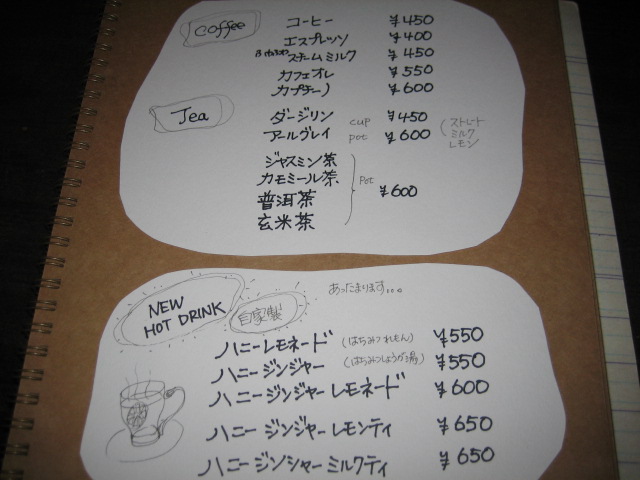 Coffee
コーヒー ¥450
エスプレッソ ¥400
ふわふわスチームミルク ¥450
カフェオレ ¥550
カプチーノ ¥600
Tea
ダージリン cup ¥450 ストレート
アールグレイ pot ¥600 ミルク
レモン
ジャスミン茶
カモミール茶 Pot
普洱茶 ¥600
玄米茶
あったまります。。。
NEW
HOT DRINK
自家製
ハニーレモネード (はちみつれもん) ¥550
ハニージンジャー (はちみつしょうが湯) ¥550
ハニージンジャーレモネード ¥600
ハニージンジャーレモンティ ¥650
ハニージンジャーミルクティ ¥650